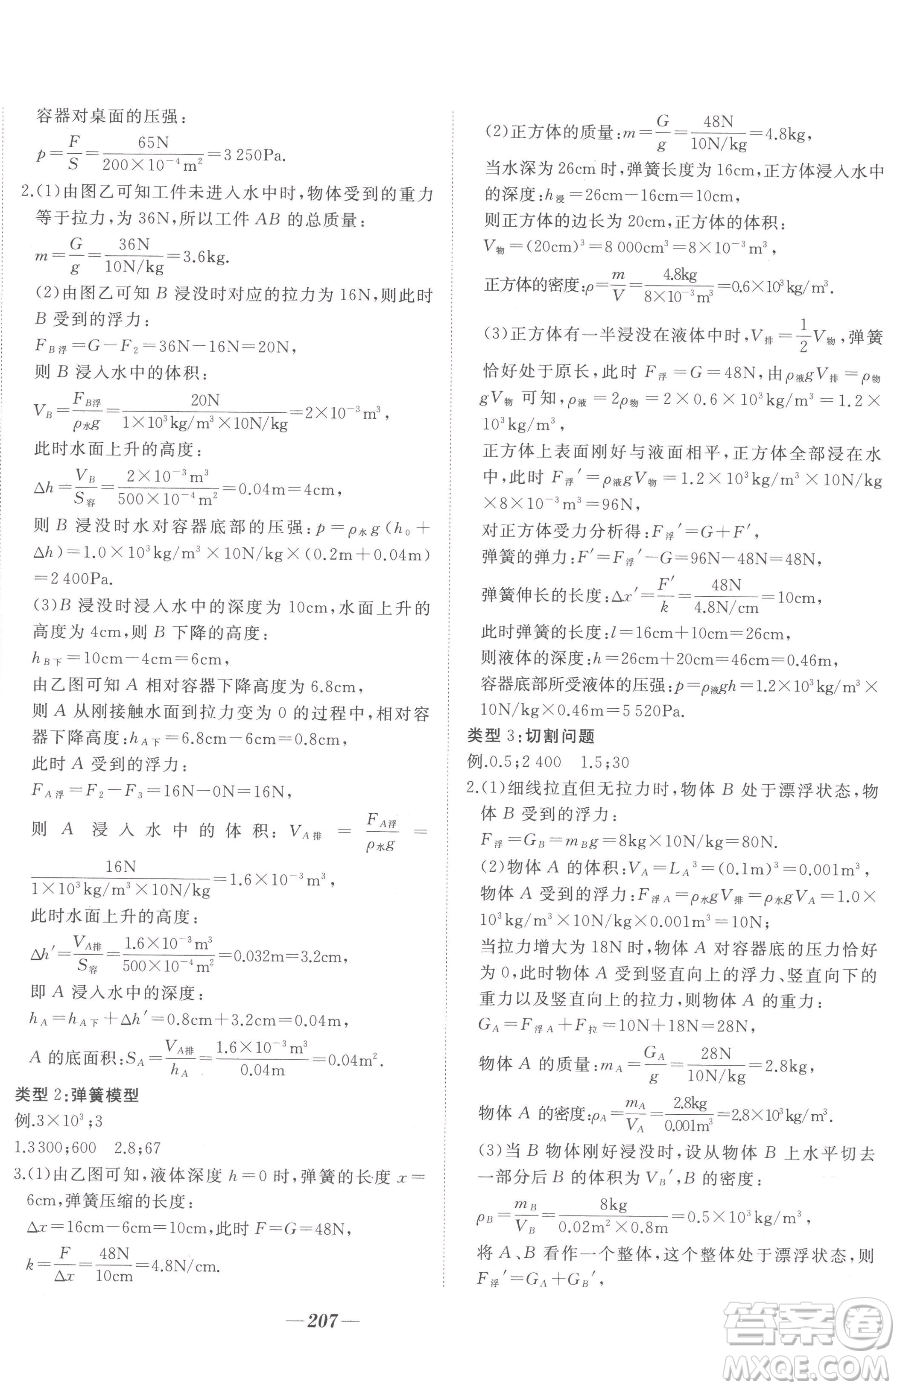 容器对桌面的压强:
p=F/S=65N/200×10⁻⁴m²=3 250Pa.
2.(1)由图乙可知工件未进入水中时,物体受到的重力
等于拉力,为 36N,所以工件 AB 的总质量:
m=G/g=36N/10N/kg=3.6kg.
(2)由图乙可知 B 浸没时对应的拉力为 16N,则此时
B 受到的浮力:
F_B浮=G-F₂=36N-16N=20N,
则 B 浸入水中的体积:
V_B=F_B浮/ρ水g=20N/1×10³kg/m³×10N/kg=2×10⁻³m³,
此时水面上升的高度:
Δh=V_B/S容=2×10⁻³m³/500×10⁻⁴m²=0.04m=4cm,
则 B 浸没时水对容器底部的压强:p=ρ水g(h₀+
Δh)=1.0×10³kg/m³×10N/kg×(0.2m+0.04m)
=2 400Pa.
(3)B 浸没时浸入水中的深度为 10cm,水面上升的
高度为 4cm,则 B 下降的高度:
h_B下=10cm-4cm=6cm,
由乙图可知 A 相对容器下降高度为 6.8cm,
则 A 从刚接触水面到拉力变为 0 的过程中,相对容
器下降高度:h_A下=6.8cm-6cm=0.8cm,
此时 A 受到的浮力:
F_A浮=F₂-F₃=16N-0N=16N,
则 A 浸入水中的体积:V_A排=F_A浮/ρ水g=
16N/1×10³kg/m³×10N/kg=1.6×10⁻³m³,
此时水面上升的高度:
Δh′=V_A排/S容=1.6×10⁻³m³/500×10⁻⁴m²=0.032m=3.2cm,
即 A 浸入水中的深度:
h_A=h_A下+Δh′=0.8cm+3.2cm=0.04m,
A 的底面积:S_A=V_A排/h_A=1.6×10⁻³m³/0.04m=0.04m².
类型 2:弹簧模型
例.3×10³;3
1.3 300;600 2.8;67
3.(1)由乙图可知,液体深度 h=0 时,弹簧的长度 x=
6cm,弹簧压缩的长度:
Δx=16cm-6cm=10cm,此时 F=G=48N,
k=F/Δx=48N/10cm=4.8N/cm.
(2)正方体的质量:m=G/g=48N/10N/kg=4.8kg,
当水深为 26cm 时,弹簧长度为 16cm,正方体浸入水中
的深度:h浸=26cm-16cm=10cm,
则正方体的边长为 20cm,正方体的体积:
V物=(20cm)³=8 000cm³=8×10⁻³m³,
正方体的密度:ρ=m/V=4.8kg/8×10⁻³m³=0.6×10³kg/m³,
(3)正方体有一半浸没在液体中时,V排=1/2V物,弹簧
恰好处于原长,此时 F浮=G=48N,由 ρ液gV排=ρ物
gV物 可知,ρ液=2ρ物=2×0.6×10³kg/m³=1.2×
10³kg/m³,
正方体上表面刚好与液面相平,正方体全部浸在水
中,则 F浮′=ρ液gV物=1.2×10³kg/m³×10N/kg
×8×10⁻³m³=96N,
对正方体受力分析得:F浮′=G+F′,
弹簧的弹力:F′=F浮′-G=96N-48N=48N,
弹簧伸长的长度:Δx′=F′/k=48N/4.8N/cm=10cm,
此时弹簧的长度:l=16cm+10cm=26cm,
则液体的深度:h=26cm+20cm=46cm=0.46m,
容器底部所受液体的压强:p=ρ液gh=1.2×10³kg/m³
×10N/kg×0.46m=5 520Pa.
类型 3:切割问题
例.0.5;2 400 1.5;30
2.(1)细线拉直但无拉力时,物体 B 处于漂浮状态,物
体 B 受到的浮力:
F浮=G_B=m_Bg=8kg×10N/kg=80N.
(2)物体 A 的体积:V_A=L_A³=(0.1m)³=0.001m³,
物体 A 受到的浮力:F浮A=ρ水gV排=ρ水gV_A=1.0×
10³kg/m³×10N/kg×0.001m³=10N;
当拉力增大为 18N 时,物体 A 对容器底的压力恰好
为 0,此时物体 A 受到竖直向上的浮力、竖直向下的
重力以及竖直向上的拉力,物体 A 的重力:
G_A=F浮A+F拉=10N+18N=28N,
物体 A 的质量:m_A=G_A/g=28N/10N/kg=2.8kg,
物体 A 的密度:ρ_A=m_A/V_A=2.8kg/0.001m³=2.8×10³kg/m³,
(3)当 B 物体刚好浸没时,设从物体 B 上水平切去
一部分后 B 的体积为 V_B′,B 的密度:
ρ_B=m_B/V_B=8kg/0.02m²×0.8m=0.5×10³kg/m³,
将 A、B 看作一个整体,这个整体处于漂浮状态,则
F浮′=G_A+G_B′,
— 207 —
答案圈
MXQE.COM